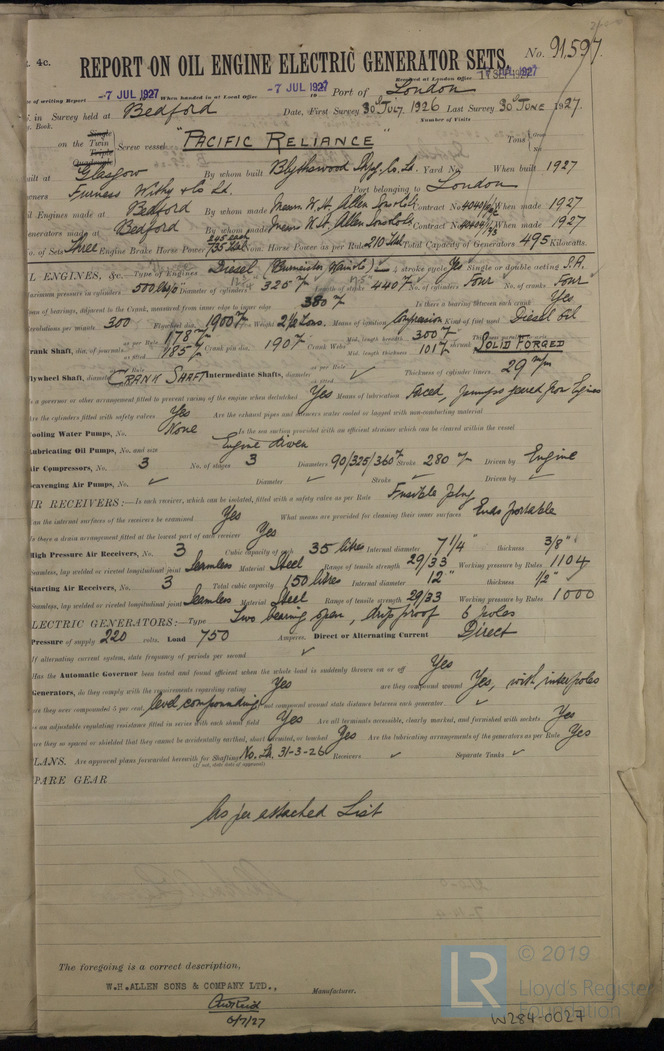 4c.
REPORT ON OIL ENGINE ELECTRIC GENERATOR SETS. No. 91,597.
Received at London Office
of writing Report -7 JUL 1927 When handed in at Local Office -7 JUL 1927 Port of London
in Survey held at Bedford Date, First Survey 30th July, 1926 Last Survey 30th June 1927.
Book. Number of Visits
Single on the Twin Triple Quadruple Screw vessel "PACIFIC RELIANCE" Tons
built at Glasgow By whom built Blythswood Shpg. Co. Ld. Yard No. When built 1927
Owners Furness Withy & Co Ld. Port belonging to London
Oil Engines made at Bedford By whom made Messrs W. H. Allen Sons & Co Ld Contract No. When made 1927
Generators made at Bedford By whom made Messrs W. H. Allen Sons & Co Ld Contract No. When made 1927
No. of Sets Three Engine Brake Horse Power 245 each 735 total Nom. Horse Power as per Rule 210 total Total Capacity of Generators 495 Kilowatts.
OIL ENGINES, &c. Type of Engines Diesel (Burmeister & Wain's) 4 stroke cycle Yes Single or double acting S.A.
Maximum pressure in cylinders 500 lbs/□" Diameter of cylinders 325 m/m Length of stroke 440 m/m No. of cylinders Four No. of cranks Four
of bearings, adjacent to the Crank, measured from inner edge to inner edge 380 m/m Is there a bearing between each crank Yes
Revolutions per minute 300 Flywheel dia. 1900 m/m Weight Means of ignition Compression Kind of fuel used Diesel Oil
Crank Shaft, dia. of journals as per Rule 178 m/m as fitted 185 m/m Crank pin dia. 190 m/m Crank Webs Mid. length breadth 300 m/m Mid. length thickness 101 m/m shrunk SOLID FORGED
Flywheel Shaft, diameter CRANK SHAFT Intermediate Shafts, diameter as per Rule as fitted Thickness of cylinder liners 29 m/m
Is a governor or other arrangement fitted to prevent racing of the engine when declutched Yes Means of lubrication Forced, pumps geared from Engines
Are the cylinders fitted with safety valves Yes Are the exhaust pipes and silencers water cooled or lagged with non-conducting material
Cooling Water Pumps, No. None Is the sea suction provided with an efficient strainer which can be cleared within the vessel
Lubricating Oil Pumps, No. and size Engine driven
Air Compressors, No. 3 No. of stages 3 Diameters 90/325/360 m/m Stroke 280 m/m Driven by Engine
Scavenging Air Pumps, No. ✓ Diameter ✓ Stroke ✓ Driven by ✓
AIR RECEIVERS:—Is each receiver, which can be isolated, fitted with a safety valve as per Rule Fusible plug
Can the internal surfaces of the receivers be examined Yes What means are provided for cleaning their inner surfaces Ends portable
Is there a drain arrangement fitted at the lowest part of each receiver Yes
High Pressure Air Receivers, No. 3 Cubic capacity of each 35 litres Internal diameter 7 1/4" thickness 3/8"
Seamless, lap welded or riveted longitudinal joint Seamless Material Steel Range of tensile strength 29/33 Working pressure by Rules 1104
Starting Air Receivers, No. 3 Total cubic capacity 150 litres Internal diameter 12" thickness 1/2"
Seamless, lap welded or riveted longitudinal joint Seamless Material Steel Range of tensile strength 29/33 Working pressure by Rules 1000
ELECTRIC GENERATORS:—Type Two bearing open, drip proof 6 poles
Pressure of supply 220 volts. Load 750 Amperes. Direct or Alternating Current Direct
If alternating current system, state frequency of periods per second ✓
Has the Automatic Governor been tested and found efficient when the whole load is suddenly thrown on or off Yes
Generators, do they comply with the requirements regarding rating Yes are they compound wound Yes, with interpoles
are they over compounded 5 per cent. level compounding not compound wound state distance between each generator ✓
is an adjustable regulating resistance fitted in series with each shunt field Yes Are all terminals accessible, clearly marked, and furnished with sockets Yes
are they so spaced or shielded that they cannot be accidentally earthed, short circuited, or touched Yes Are the lubricating arrangements of the generators as per Rule Yes
PLANS. Are approved plans forwarded herewith for Shafting No. Ld. 31-3-26 Receivers ✓ Separate Tanks ✓
(If not, state date of approval)
SPARE GEAR
As per attached List
The foregoing is a correct description,
W.H.ALLEN SONS & COMPANY LTD., Manufacturer.
6/7/27
© 2019
LR Lloyd's Register
Foundation
W284-0027